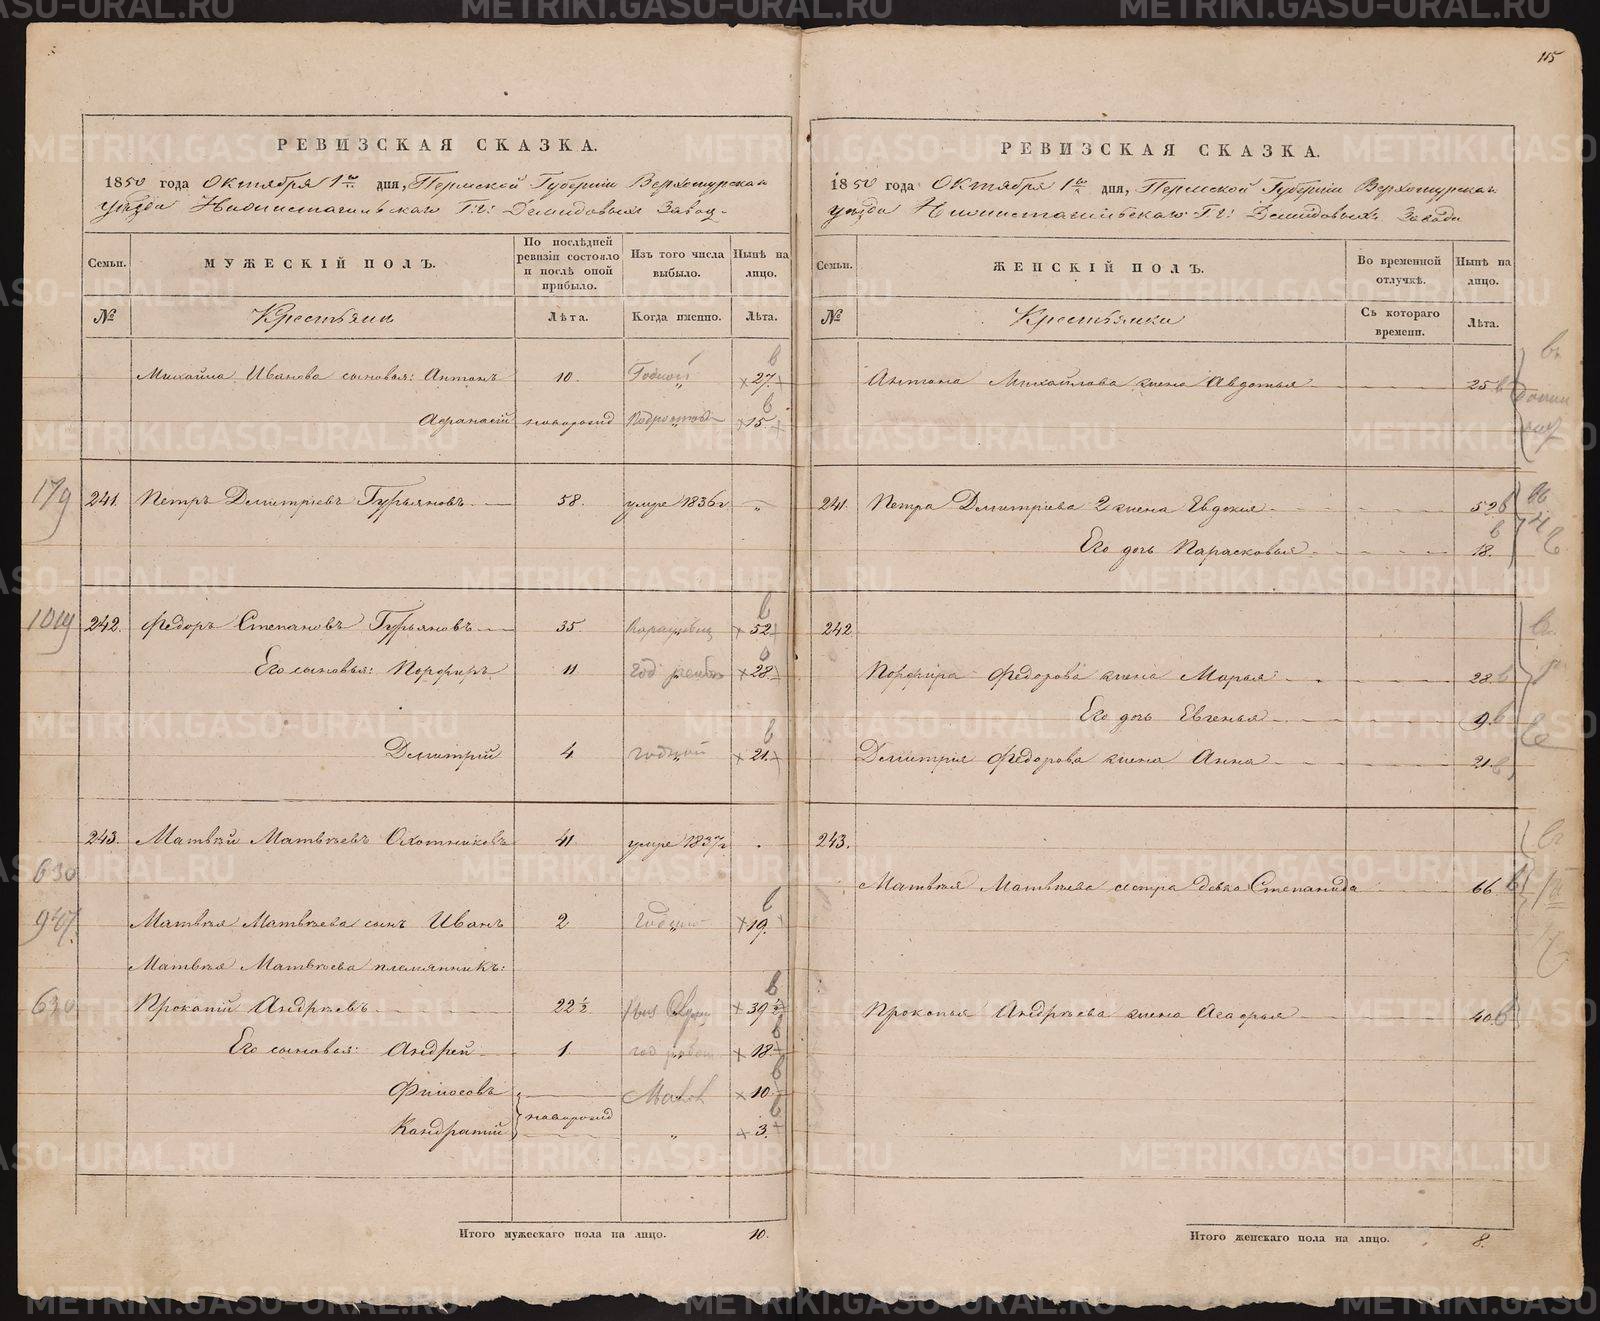 115
РЕВИЗСКАЯ СКАЗКА.
1850 года Октября 1го дня, Пермской Губернiи Верхотурскаго
уѣзда Нижнетагильскаго Г:г: Демидовыхъ Завод
Семьи.
МУЖЕСКIЙ ПОЛЪ.
По послѣдней ревизiи состояло и послѣ оной прибыло.
Изъ того числа выбыло.
Нынѣ на лицо.
№
Крестьяни
Лѣта.
Когда именно.
Лѣта.
Михайла Иванова сыновья: Антонъ 10. Годной 27
Афанасiй новорожд Подростокъ 15
179 241. Петръ Дмитрiевъ Гурьяновъ 58. умре 1836г "
1019 242. Федоръ Степановъ Гурьяновъ 35. 52
Его сыновья: Порфиръ 11 28
Дмитрiй 4 годной 21
243. Матвѣй Матвѣевъ Охотниковъ 41 умре 1837г
630
947. Матвѣя Матвѣева сынъ Иванъ 2 Годной 19.
Матвѣя Матвѣева племянникъ:
630 Прокопiй Андрѣевъ 22½ 39½
Его сыновья: Андрей 1 18
Филосовъ новорожд 10
Кандратiй " 3.
Итого мужескаго пола на лицо. 10.
РЕВИЗСКАЯ СКАЗКА.
1850 года Октября 1го дня, Пермской Губернiи Верхотурскаго
уѣзда Нижнетагильскаго Г:г: Демидовыхъ Завода
Семьи.
ЖЕНСКIЙ ПОЛЪ.
Во временной отлучкѣ.
Нынѣ на лицо.
№
Крестьянки
Съ котораго времени.
Лѣта.
Антона Михайлова жена Авдотья 25
241. Петра Дмитрiева 2 жена Евдокия 52
Его дочь Парасковья 18.
242
Порфира Федорова жена Марья 28
Его дочь Евгенья 9
Дмитрiя Федорова жена Анна 21
243.
Матвѣя Матвѣева сестра девка Степанида 66
Прокопья Андрѣева жена Агафья 40
Итого женскаго пола на лицо. 8.
METRIKI.GASO-URAL.RU